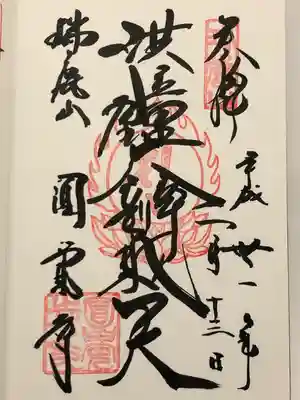 奉拝
平成卅一年
月十三日
洪鐘弁財天
瑞鹿山
圓覚寺